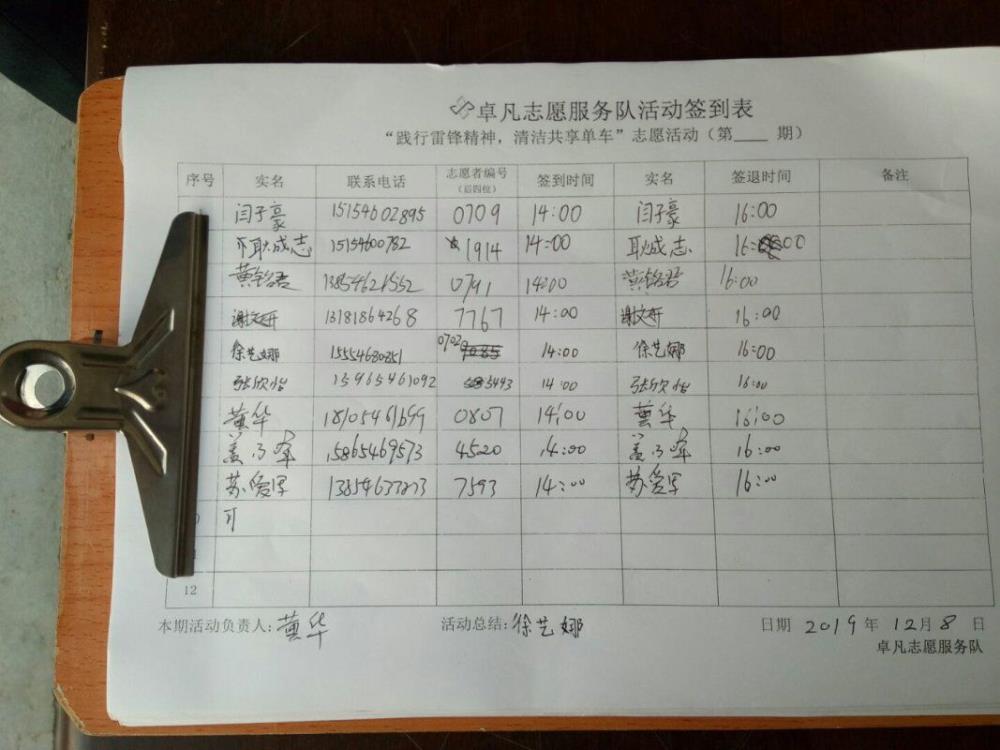 卓凡志愿服务队活动签到表
“践行雷锋精神，清洁共享单车”志愿活动（第____ 期）
序号 实名 联系电话 志愿者编号（后四位） 签到时间 实名 签退时间 备注
闫子豪 15154602895 0709 14:00 闫子豪 16:00
耿成志 15154600782 1914 14:00 耿成志 16:00
黄铭君 13854621552 0791 14:00 黄铭君 16:00
谢文妍 13181864268 7767 14:00 谢文妍 16:00
徐艺娜 15554680851 0702 14:00 徐艺娜 16:00
张欣怡 15965461092 5493 14:00 张欣怡 16:00
黄华 18105461699 0807 14:00 黄华 16:00
盖子峰 15865469573 4520 14:00 盖子峰 16:00
苏爱军 7593 14:00 苏爱军 16:00
12
本期活动负责人: 黄华 活动总结: 徐艺娜 日期 2019 年 12 月 8 日
卓凡志愿服务队